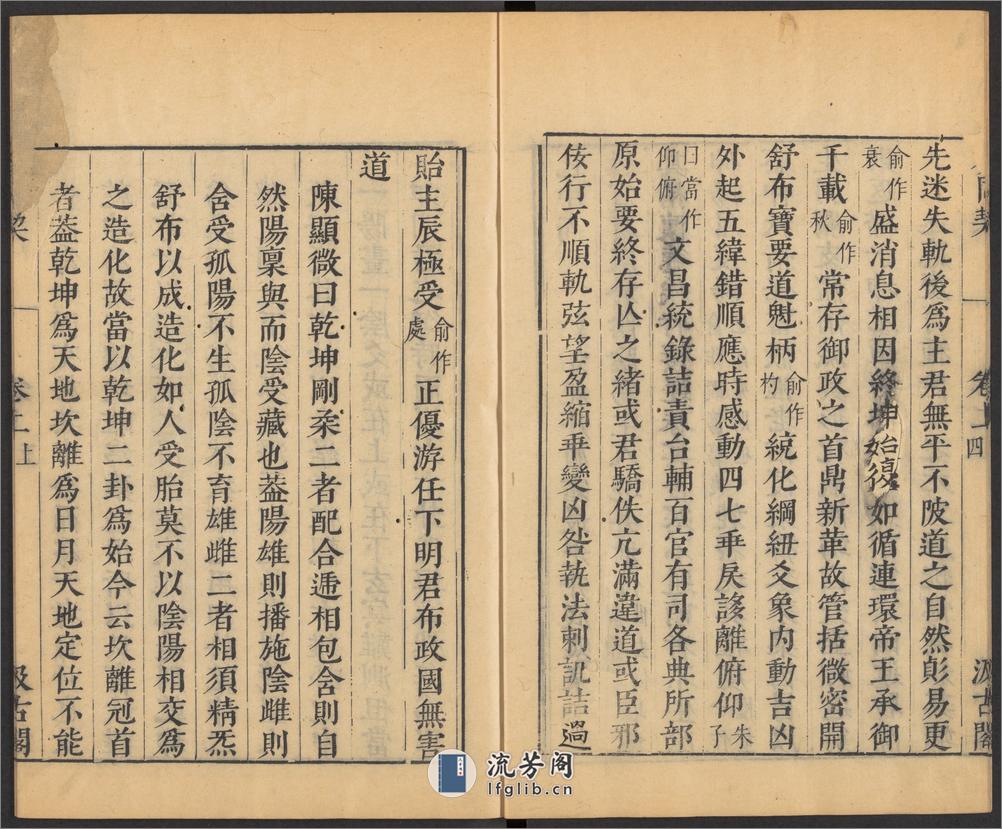 先迷失軌後爲主君無平不陂道之自然彰易更
俞作衰盛消息相因終坤始復如循連環帝王承御
千載俞作秋常存御政之首鼎新革故管括微密開
舒布寶要道魁柄俞作杓統化綱紐爻象内動吉凶
外起五緯錯順應時感動四七乖戾誃離俯仰朱子
曰當作仰俯文昌統錄詰責台輔百官有司各典所部
原始要終存亾之緒或君驕佚亢滿違道或臣邪
佞行不順軌弦望盈縮乖變凶咎執法刺譏詰過
貽主辰極受俞作處正優游任下明君布政國無害
道
陳顯微曰乾坤剛柔二者配合遞相包含則自
然陽稟與而陰受藏也葢陽雄則播施陰雌則
含受孤陽不生孤陰不育雄雌二者相須精炁
舒布以成造化如人受胎莫不以陰陽相交爲
之造化故當以乾坤二卦爲始今云坎離冠首
者葢乾坤爲天地坎離爲日月天地定位不能
卷上
四
汲古閣
卷上
上
汲古閣
流芳阁
lfglib.cn